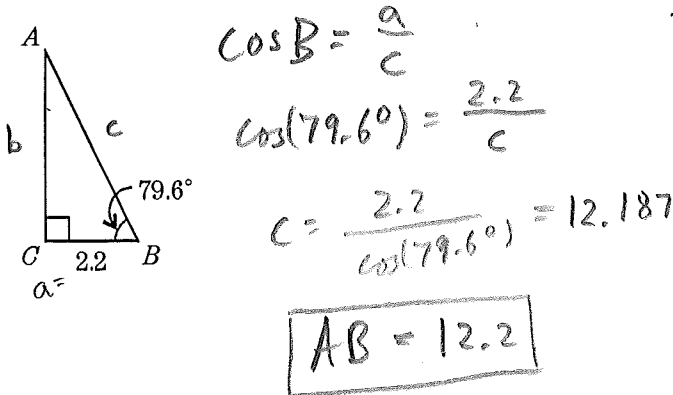 A
b
c
79.6°
C
2.2
B
a=
cos B = a/c
cos(79.6°) = 2.2/c
c = 2.2/cos(79.6°) = 12.187
AB = 12.2